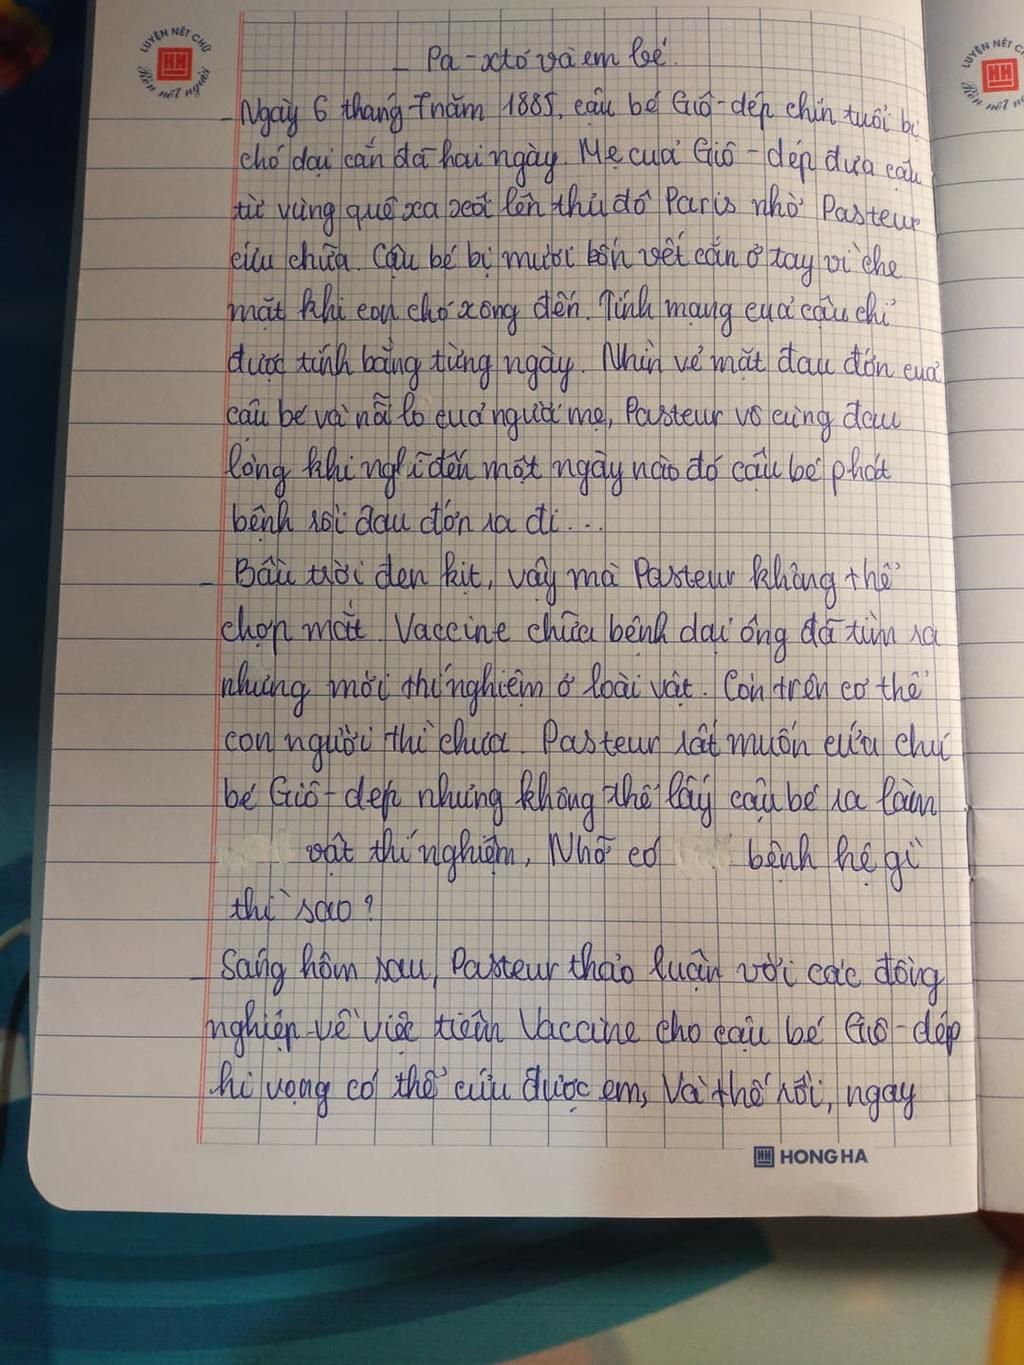 LUYỆN NÉT CHỮ
HH
Rèn nết người
LUYỆN NÉT CH
HH
Pa-xtơ và em bé.
Ngày 6 tháng 7 năm 1885, cậu bé Giô-dép chín tuổi bị
chó dại cắn đã hai ngày. Mẹ của Giô-dép đưa cậu
từ vùng quê xa xôi lên thủ đô Paris nhờ Pasteur
cứu chữa. Cậu bé bị mười bốn vết cắn ở tay vì che
mặt khi con chó xông đến. Tính mạng của cậu chỉ
được tính bằng từng ngày. Nhìn vẻ mặt đau đớn của
cậu bé và nỗi lo của người mẹ, Pasteur vô cùng đau
lòng khi nghĩ đến một ngày nào đó cậu bé phát
bệnh rồi đau đớn ra đi...
Bầu trời đen kịt, vậy mà Pasteur không thể
chợp mắt. Vaccine chữa bệnh dại ông đã tìm ra
nhưng mới thí nghiệm ở loài vật. Còn trên cơ thể
con người thì chưa. Pasteur rất muốn cứu chú
bé Giô-dép nhưng không thể lấy cậu bé ra làm
vật thí nghiệm, Nhỡ có bệnh hệ gì
thì sao?
Sáng hôm sau, Pasteur thảo luận với các đồng
nghiệp về việc tiêm Vaccine cho cậu bé Giô-dép
hi vọng có thể cứu được em, Và thế rồi, ngay
HH HONG HA